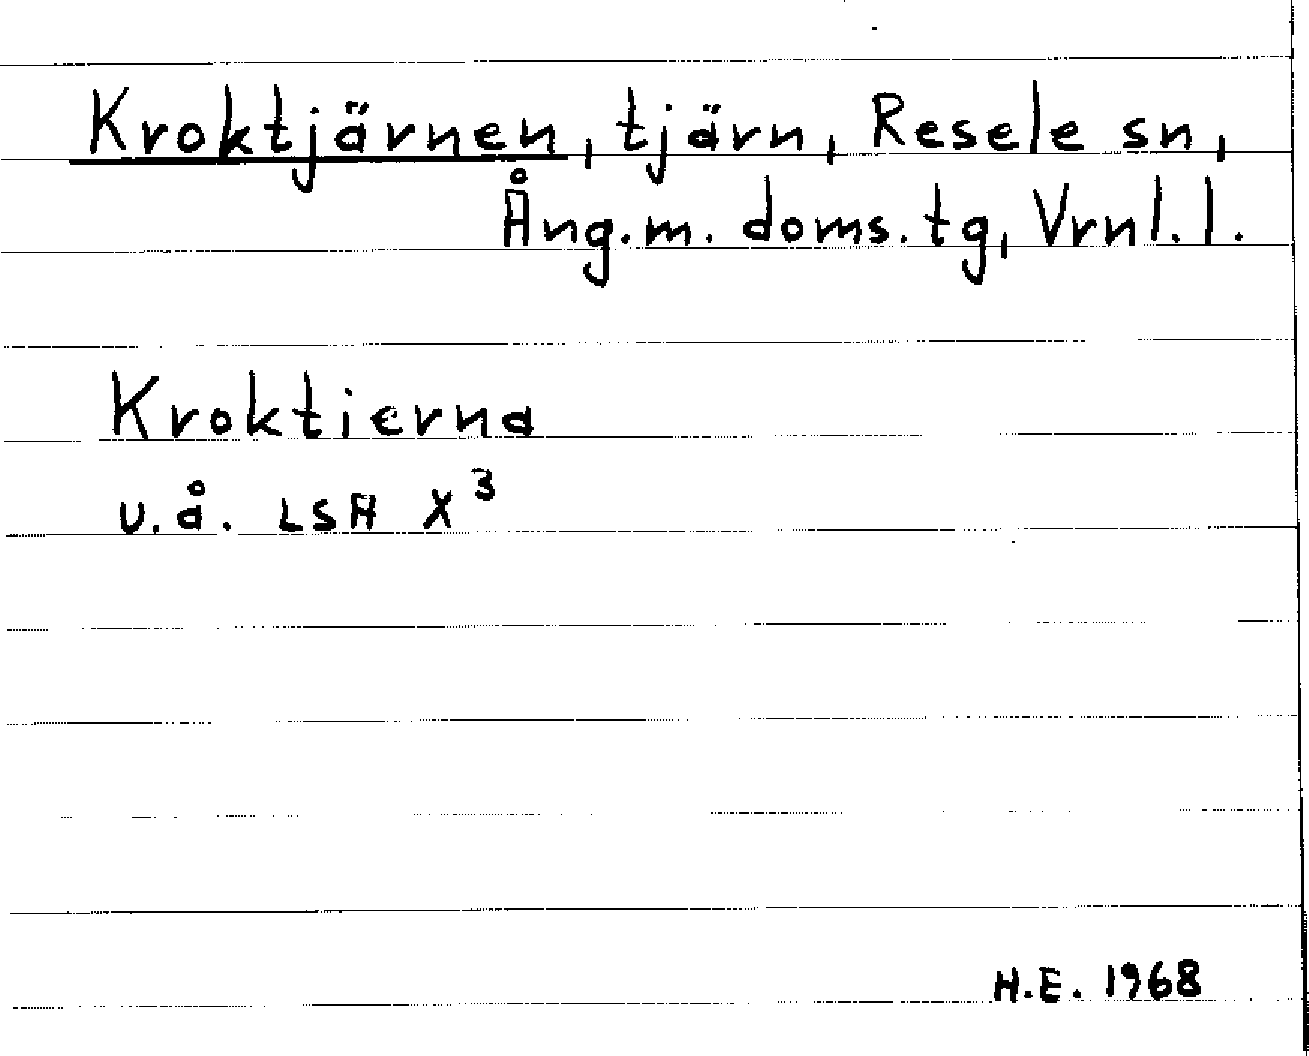 Kroktjärnen, tjärn, Resele sn,
Ång.m. doms.tg, Vrnl.l.
Kroktierna
u.å. LSA X³
H.E. 1968